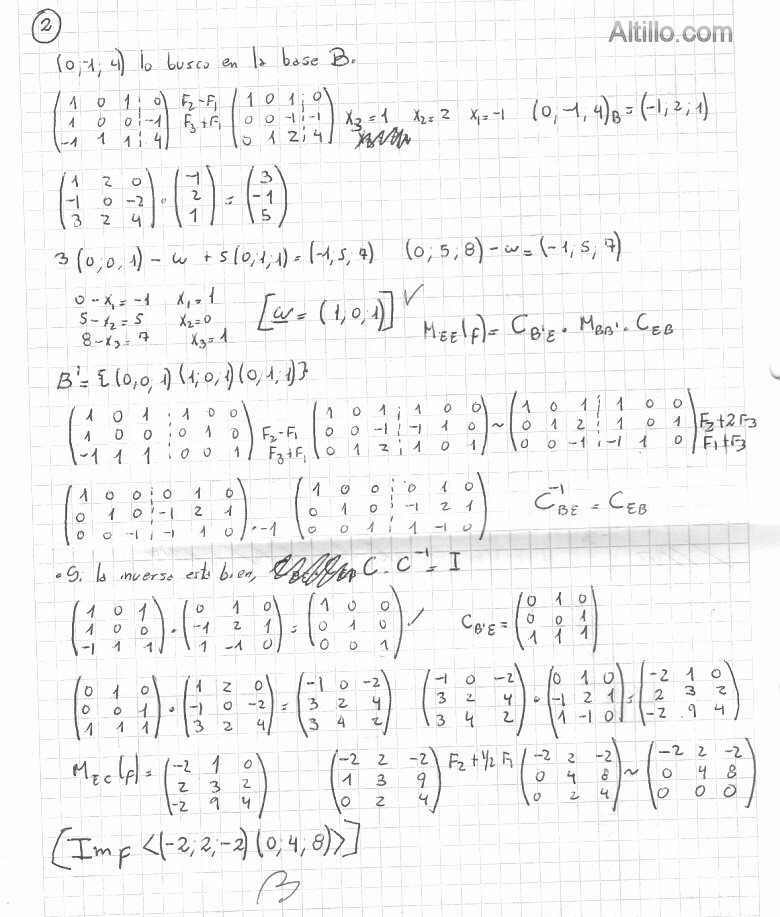 2
Altillo.com
(0,-1,4) lo busco en la base B.
( 1 0 1 ¦ 0 ; 1 0 0 ¦ -1 ; -1 1 1 ¦ 4 ) F₂-F₁ F₃+F₁ ( 1 0 1 ¦ 0 ; 0 0 -1 ¦ -1 ; 0 1 2 ¦ 4 ) X₃=1 X₂=2 X₁=-1 (0,-1,4)_B = (-1,2,1)
( 1 2 0 ; -1 0 -2 ; 3 2 4 ) · ( -1 ; 2 ; 1 ) = ( 3 ; -1 ; 5 )
3(0,0,1) - w + 5(0,1,1) = (-1,5,7) (0,5,8) - w = (-1,5,7)
0-x₁=-1 x₁=1
5-x₂=5 x₂=0
8-x₃=7 x₃=1
[w = (1,0,1)] ✓
M_EE(f) = C_B'E · M_BB' · C_EB
B' = {(0,0,1)(1,0,1)(0,1,1)}
( 1 0 1 ¦ 1 0 0 ; 1 0 0 ¦ 0 1 0 ; -1 1 1 ¦ 0 0 1 ) F₂-F₁ F₃+F₁ ( 1 0 1 ¦ 1 0 0 ; 0 0 -1 ¦ -1 1 0 ; 0 1 2 ¦ 1 0 1 ) ~ ( 1 0 1 ¦ 1 0 0 ; 0 1 2 ¦ 1 0 1 ; 0 0 -1 ¦ -1 1 0 ) F₂+2F₃ F₁+F₃
( 1 0 0 ¦ 0 1 0 ; 0 1 0 ¦ -1 2 1 ; 0 0 -1 ¦ -1 1 0 ) ·-1 ( 1 0 0 ¦ 0 1 0 ; 0 1 0 ¦ -1 2 1 ; 0 0 1 ¦ 1 -1 0 ) C⁻¹_BE = C_EB
· Si la inversa esta bien, C·C⁻¹ = I
( 1 0 1 ; 1 0 0 ; -1 1 1 ) · ( 0 1 0 ; -1 2 1 ; 1 -1 0 ) = ( 1 0 0 ; 0 1 0 ; 0 0 1 ) ✓ C_B'E = ( 0 1 0 ; 0 0 1 ; 1 1 1 )
( 0 1 0 ; 0 0 1 ; 1 1 1 ) · ( 1 2 0 ; -1 0 -2 ; 3 2 4 ) = ( -1 0 -2 ; 3 2 4 ; 3 4 2 ) ( -1 0 -2 ; 3 2 4 ; 3 4 2 ) · ( 0 1 0 ; -1 2 1 ; 1 -1 0 ) = ( -2 1 0 ; 2 3 2 ; -2 9 4 )
M_EC(f) = ( -2 1 0 ; 2 3 2 ; -2 9 4 ) ( -2 2 -2 ; 1 3 9 ; 0 2 4 ) F₂+1/2 F₁ ( -2 2 -2 ; 0 4 8 ; 0 2 4 ) ~ ( -2 2 -2 ; 0 4 8 ; 0 0 0 )
[Im f <(-2,2,-2)(0,4,8)>]
B